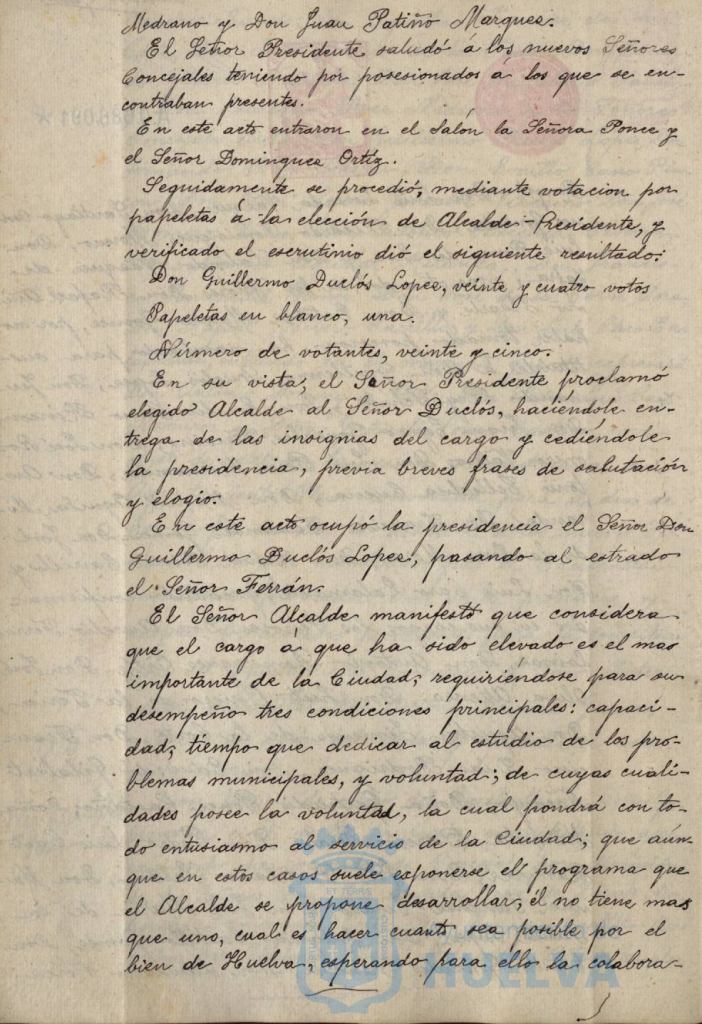 Medrano y Don Juan Patiño Marquez.
El Señor Presidente saludó á los nuevos Señores
Concejales teniendo por posesionados á los que se en-
contraban presentes.
En este acto entraron en el Salón la Señora Ponce y
el Señor Dominguez Ortíz.
Seguidamente se procedió, mediante votacion por
papeletas á la elección de Alcalde-Presidente, y
verificado el escrutinio dió el siguiente resultado:
Don Guillermo Duclós Lopez, veinte y cuatro votos
Papeletas en blanco, una.
Número de votantes, veinte y cinco.
En su vista, el Señor Presidente proclamó
elegido Alcalde al Señor Duclós, haciéndole en-
trega de las insignias del cargo y cediéndole
la presidencia, previa breves frases de salutación
y elogio.
En este acto ocupó la presidencia el Señor Don
Guillermo Duclós Lopez, pasando al estrado
el Señor Ferrán.
El Señor Alcalde manifestó que considera
que el cargo á que ha sido elevado es el mas
importante de la Ciudad, requiriéndose para su
desempeño tres condiciones principales: capaci-
dad, tiempo que dedicar al estudio de los pro-
blemas municipales, y voluntad; de cuyas cuali-
dades posee la voluntad, la cual pondrá con to-
do entusiasmo al servicio de la Ciudad; que aún-
que en estos casos suele exponerse el programa que
el Alcalde se propone desarrollar, él no tiene mas
que uno, cual es hacer cuanto sea posible por el
bien de Huelva, esperando para ello la colabora-
HUELVA